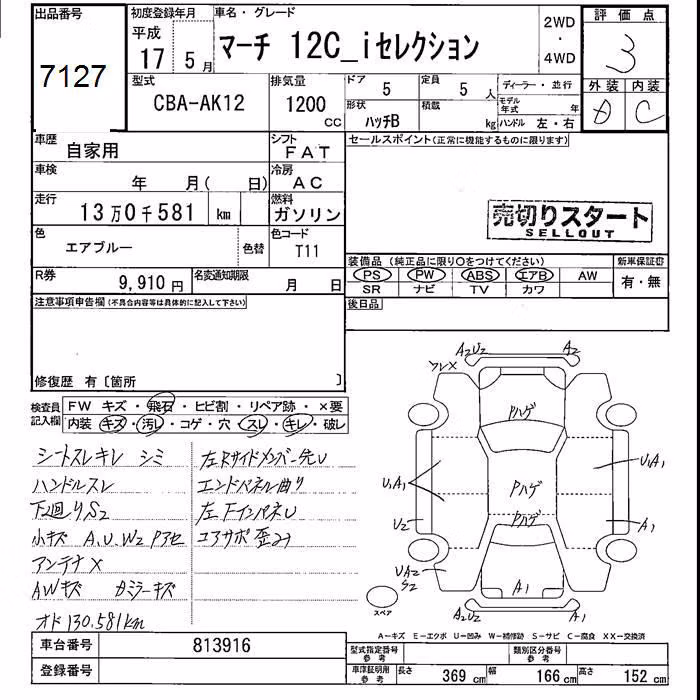 出品番号
7127
初度登録年月
平成
17 5月
車名・グレード
マーチ 12C_iセレクション
2WD
・
4WD
評価点
3
外装 内装
A C
型式
CBA-AK12
排気量
1200
CC
ドア
5
定員
5 人
形状
ハッチB
積載
kg
ディーラー・並行
モデル
年式 年
ハンドル 左・右
車歴
自家用
シフト
FAT
車検
年 月( 日)
冷房
AC
走行
13万0千581 km
燃料
ガソリン
色
エアブルー
色替
色コード
T11
R券
9,910円
名変通知期限
月 日
セールスポイント(正常に機能するものに限ります)
売切りスタート
SELLOUT
装備品 (純正品に限り○をつけてください)
PS PW ABS エアB AW
SR ナビ TV カワ
新車保証書
有・無
後日品
注意事項申告欄(不具合内容等は具体的に記入して下さい)
修復歴 有〔箇所 〕
検査員
記入欄
FW キズ・飛石・ヒビ割・リペア跡・×要
内装 キズ・汚レ・コゲ・穴・スレ・キレ・破レ
シートスレキレ シミ
ハンドルスレ
下廻りS2
小キズ A.U.W2 Pアセ
アンテナX
AWキズ カミラーキズ
オド130.581km
左Rサイドメンバー先U
エンドパネル曲り
左FインパネU
コアサポ歪み
A2U2 A2
フレX
Pハゲ
Pハゲ
Pハゲ
U1A1
U2
UA2
S2
U1A1
A1
A1
A2U2 A2
スペア
A-キズ E-エクボ U-凹み W-補修跡 S-サビ C-腐食 XX-交換済
車台番号
813916
登録番号
型式指定番号
参考
類別区分番号
参考
車庫証明用
参考
長さ 369 cm 幅 166 cm 高さ 152 cm